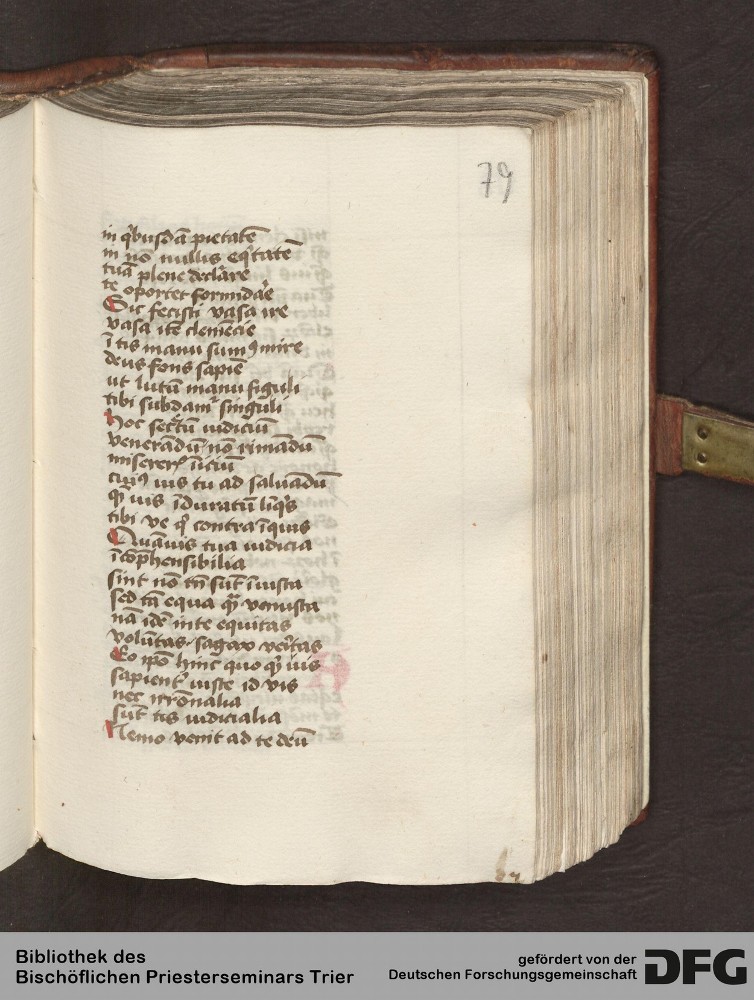 79
in qͥbusdā pietatē
in nō nullis eqͥtatē
tuā plene declare
te oportet formidāe
Sic fecisti vasa ire
vasa itē clemēcie
ī tis manu sumꝰ mire
deus fons sapiē
ut lutū manu figuli
tibi subdamͬ singuli
Hoc secͤtū iudiciū
venerādū nō rimādū
ī iciū
vis tu ad saluādū
qͫ vis īduratū līqͥs
tibi ve qͥ contra īquis
Quāuis tua iudicia
īcōp̄hensibilia
sint nō tn̄ sūt īiusta
sed tā equa qͫ venusta
nā idē in te equitas
volūtas sagax veͥtas
Eo ip̄o hinc quo qͫ vis
sapienͭ iuste id vis
nec irrōnalia
sūt tis iudicialia
Nemo venit ad te deū
Bibliothek des
Bischöflichen Priesterseminars Trier
gefördert von der
Deutschen Forschungsgemeinschaft
DFG